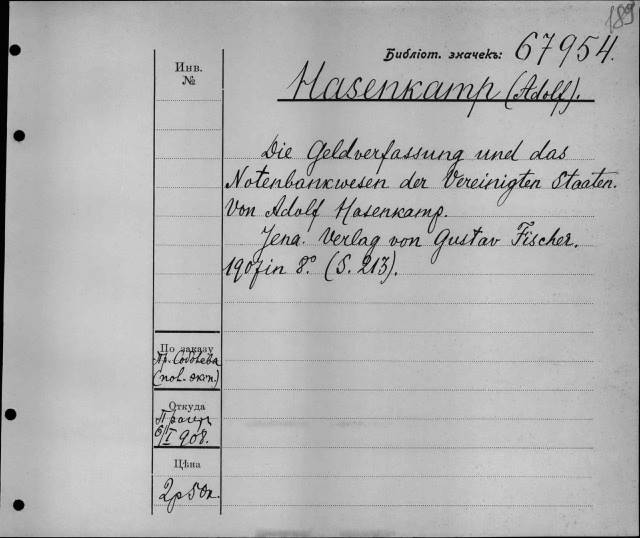 189
Библіот. значекъ: 67954.
Инв.
№
Hasenkamp (Adolf).
Die Geldverfassung und das
Notenbankwesen der Vereinigten Staaten.
Von Adolf Hasenkamp.
Jena. Verlag von Gustav Fischer.
1907 in 8.º (S. 213).
По заказу
Пр. Соболева
(пов. экп.)
Откуда
Прагер
6/I 908.
Цѣна
2р 50к.